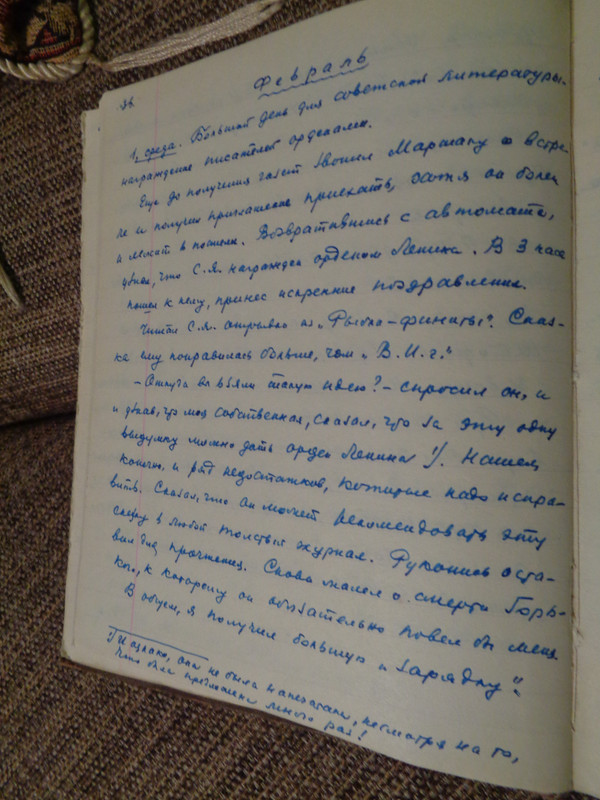 38.
Февраль
1, среда. Большой день для советской литературы.
награждение писателей орденами.
Еще до получения газет звонил Маршаку о встре-
че и получил приглашение приехать, хотя он болен
и лежит в постели. Возвратившись с автомата,
узнал, что С.Я. награжден орденом Ленина. В 3 часа
пошел к нему, принес искренние поздравления.
Читал С.Я. отрывки из „Рыбки-финиты". Сказ-
ка ему понравилась больше, чем „В.И.г."
– Откуда вы взяли такую идею? – спросил он, и
узнав, что моя собственная, сказал, что за эту одну
выдумку можно дать орден Ленина 1). Нашел,
конечно, и ряд недостатков, которые надо испра-
вить. Сказал, что он может рекомендовать эту
сказку в любой толстый журнал. Рукопись оста-
вил для прочтения. Снова жалел о смерти Горь-
кого, к которому он обязательно повел бы меня.
В общем, я получил большую „зарядку".
1) И однако, она не была напечатана, несмотря на то,
что была прочитана много раз!